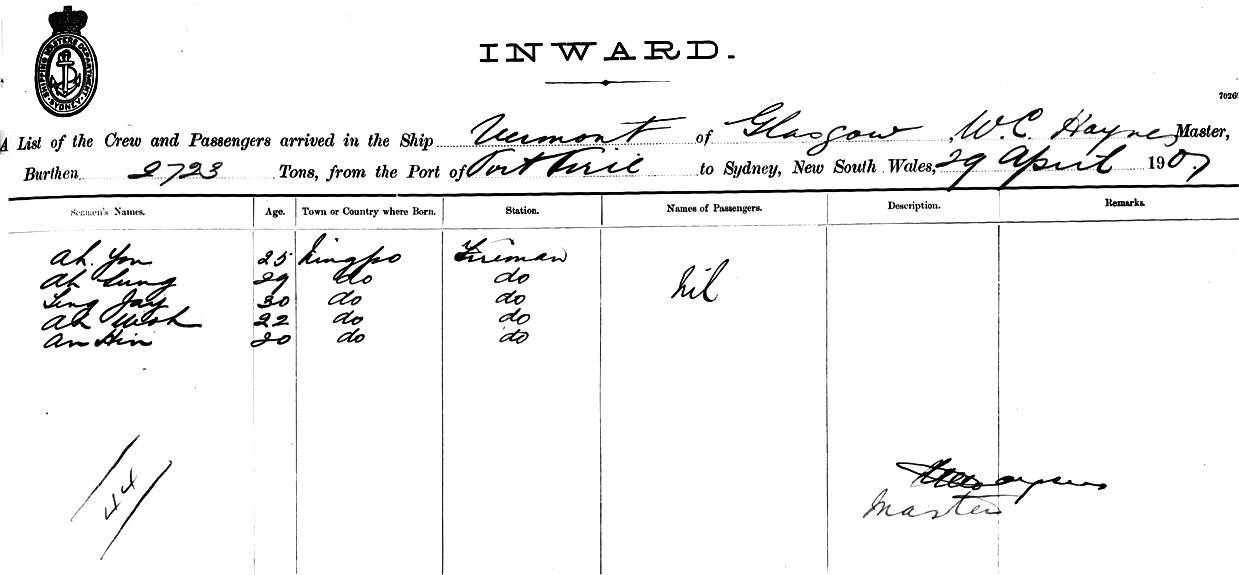 SHIPPING MASTERS DEPARTMENT
SYDNEY
INWARD.
7026
A List of the Crew and Passengers arrived in the Ship Vermont of Glasgow, W.C. Haynes Master,
Burthen 2723 Tons, from the Port of Port Pirie to Sydney, New South Wales, 29 April 1907
Seamen's Names. Age. Town or Country where Born. Station. Names of Passengers. Description. Remarks.
Ah. Yon 25 Ningpo Fireman
Ah Sung 29 do do nil
Jay 30 do do
Ah Woh 22 do do
An Hin 20 do do
44
Master